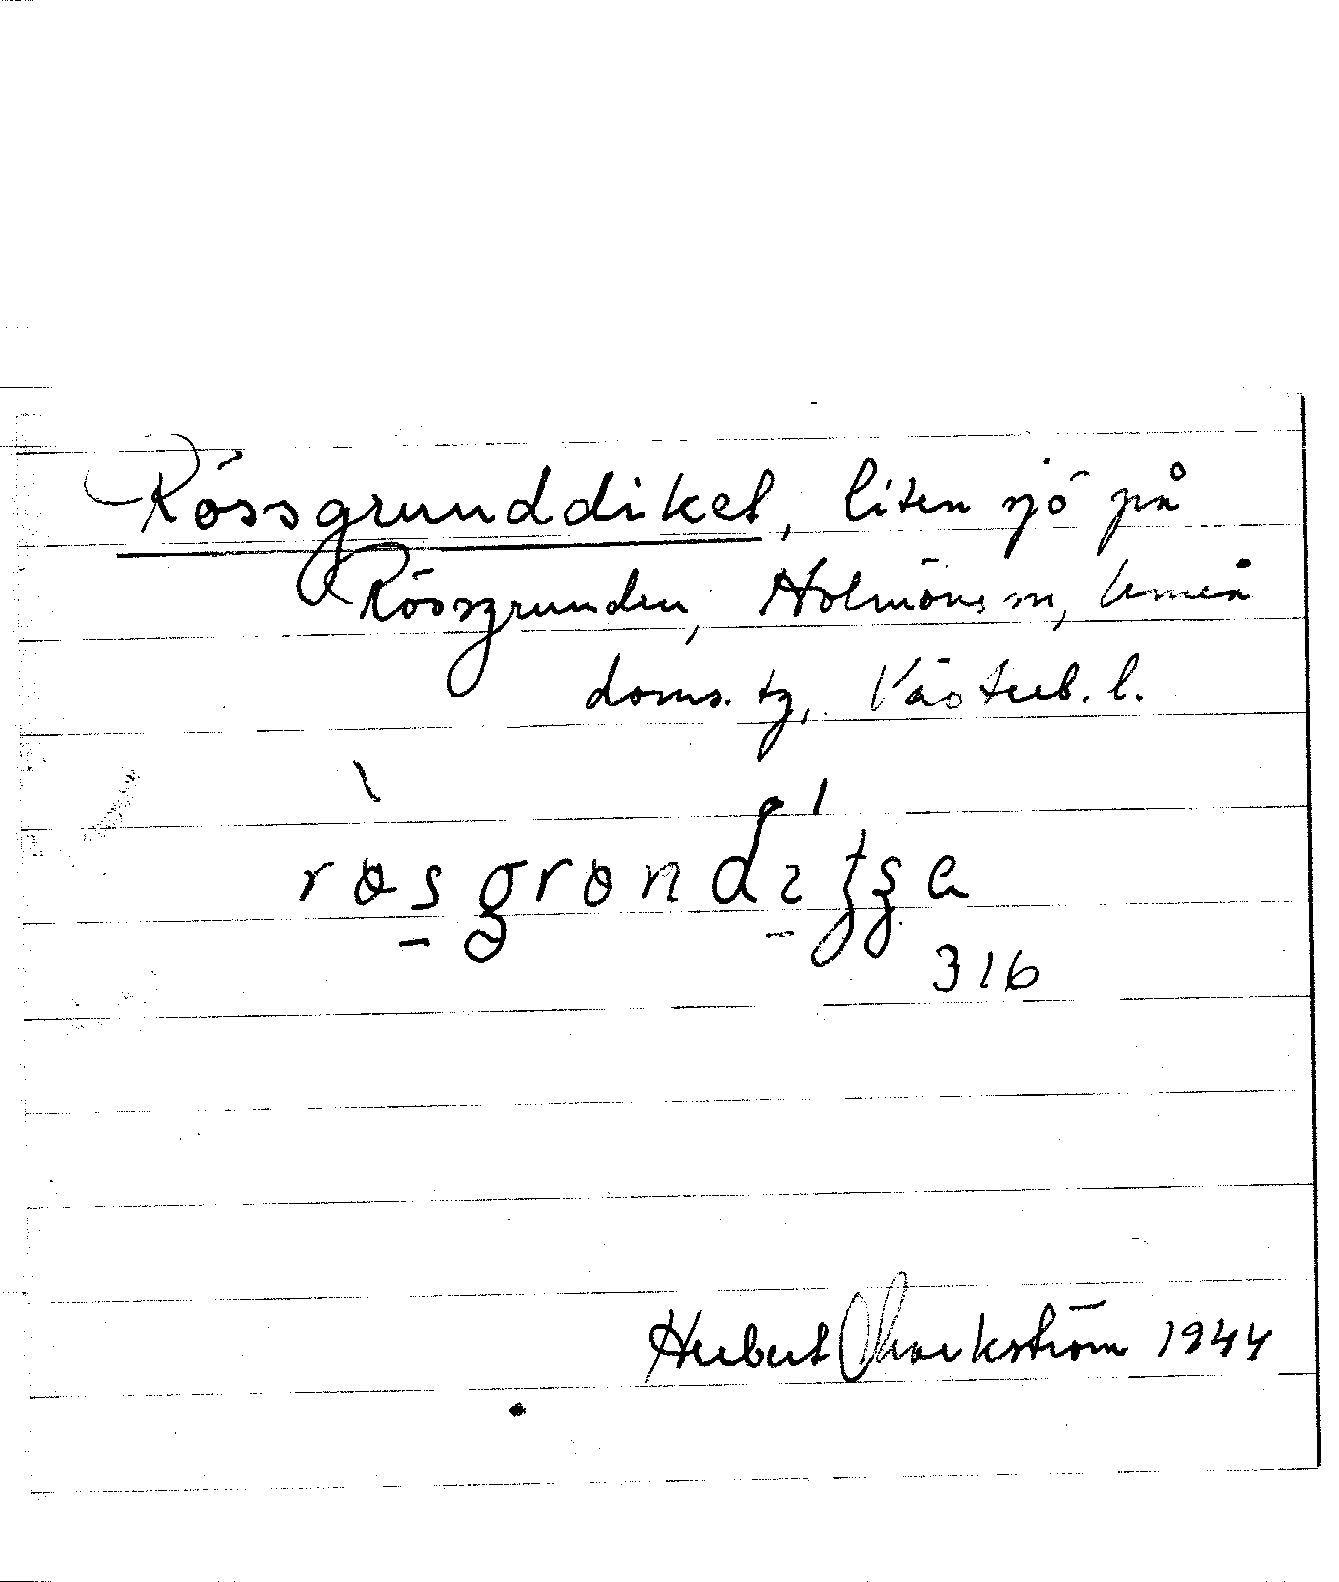 Rössgrunddiket, liten sjö på
Rössgrunden, Holmöns sn, Umeå
doms. tg, Västerb. l.
316
Herbert Markström 1944